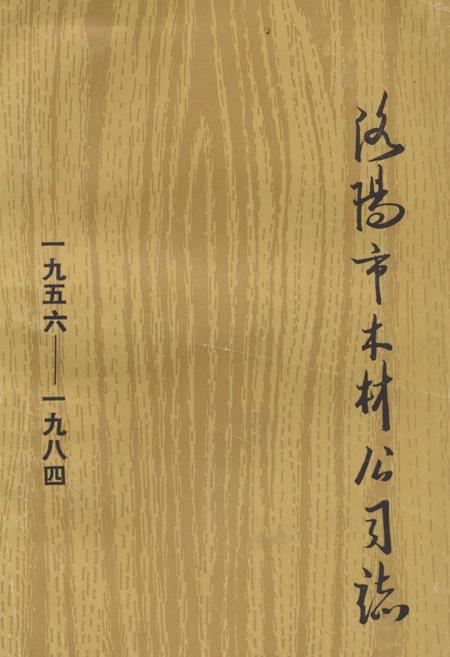 洛陽市木材公司誌
一九五六——一九八四